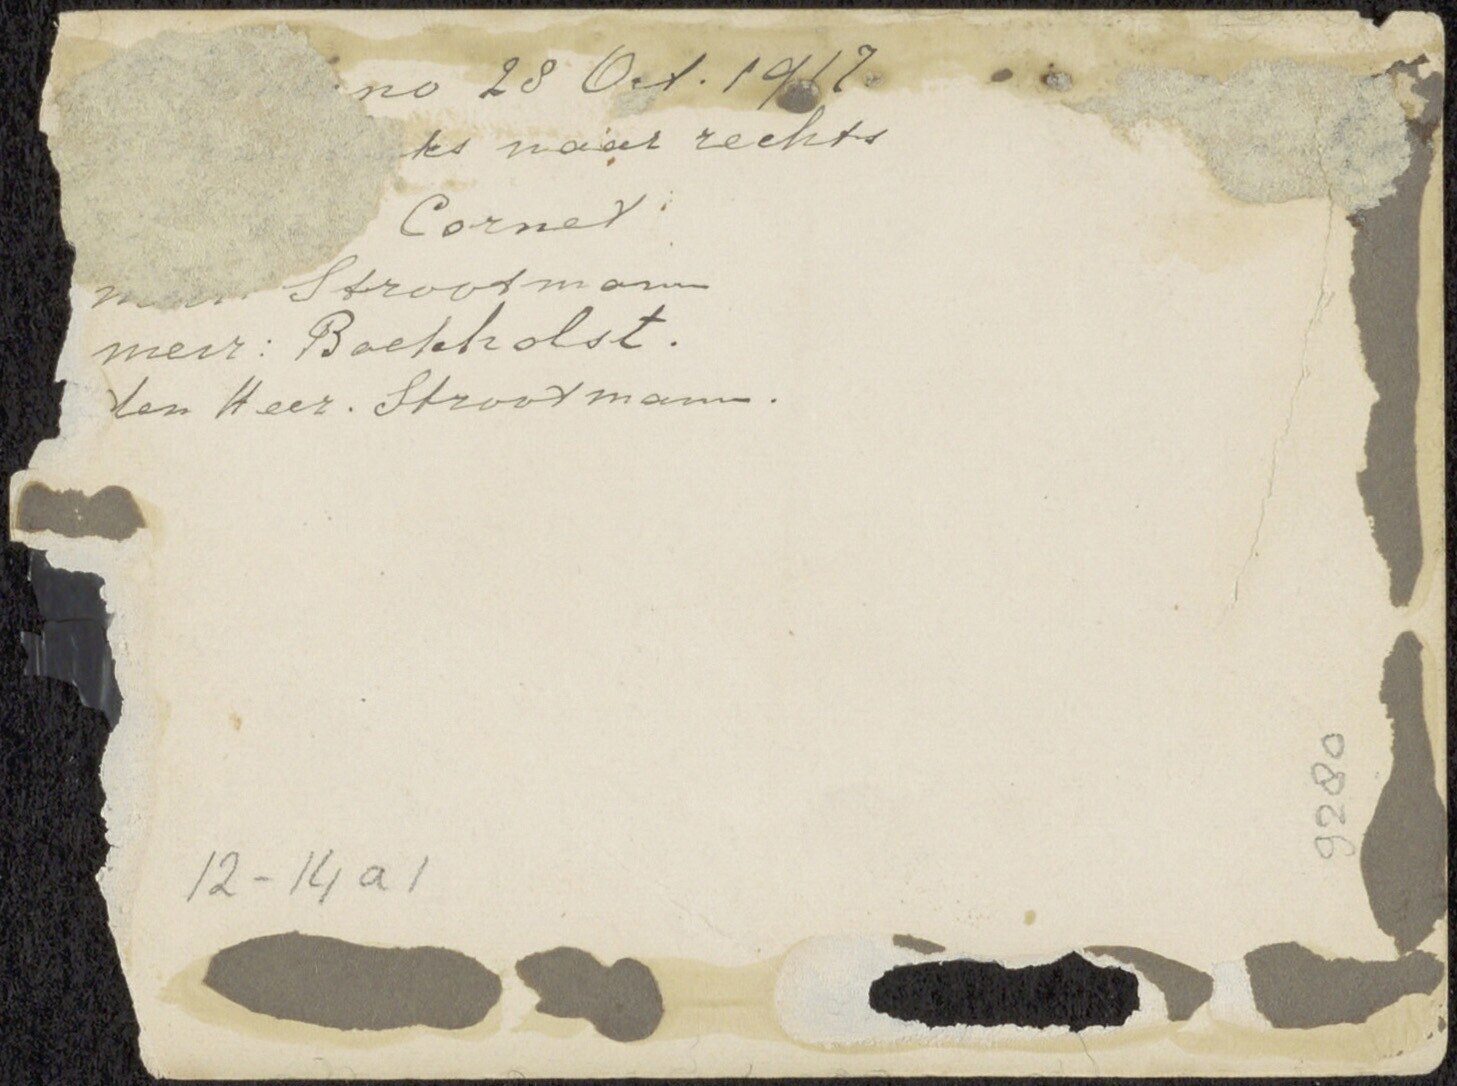 no 28 Oct. 1917.
ks naar rechts
Cornet
Strootmann
mevr: Bockholst.
den Heer. Strootmann.
12-14 a 1
9280